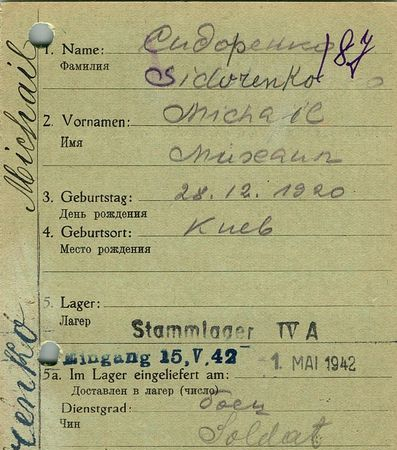 1. Name: Сидоренко 187
Фамилия Sidorenko
2. Vornamen: Michail
Имя Михаил
3. Geburtstag: 28.12.1920
День рождения
4. Geburtsort: Киев
Место рождения
5. Lager:
Лагерь Stammlager IV A
Eingang 15.V.42 - 1. MAI 1942
5a. Im Lager eingeliefert am:
Доставлен в лагерь (число)
Dienstgrad: боец
Чин Soldat
Michail
renko